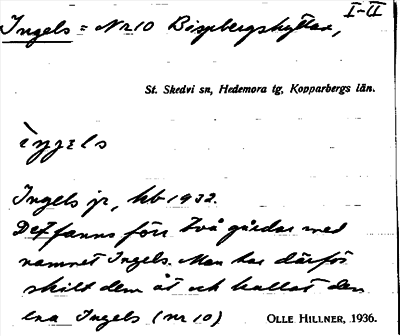 I-II
Ingels = Nr 10 Bispbergshyttan,
St. Skedvi sn, Hedemora tg, Kopparbergs län.
Ingels jr, hb 1932.
Det fanns förr två gårdar med
namnet Ingels. Man har därför
skilt dem åt och kallat den
ena Ingels (nr 10)
OLLE HILLNER, 1936.